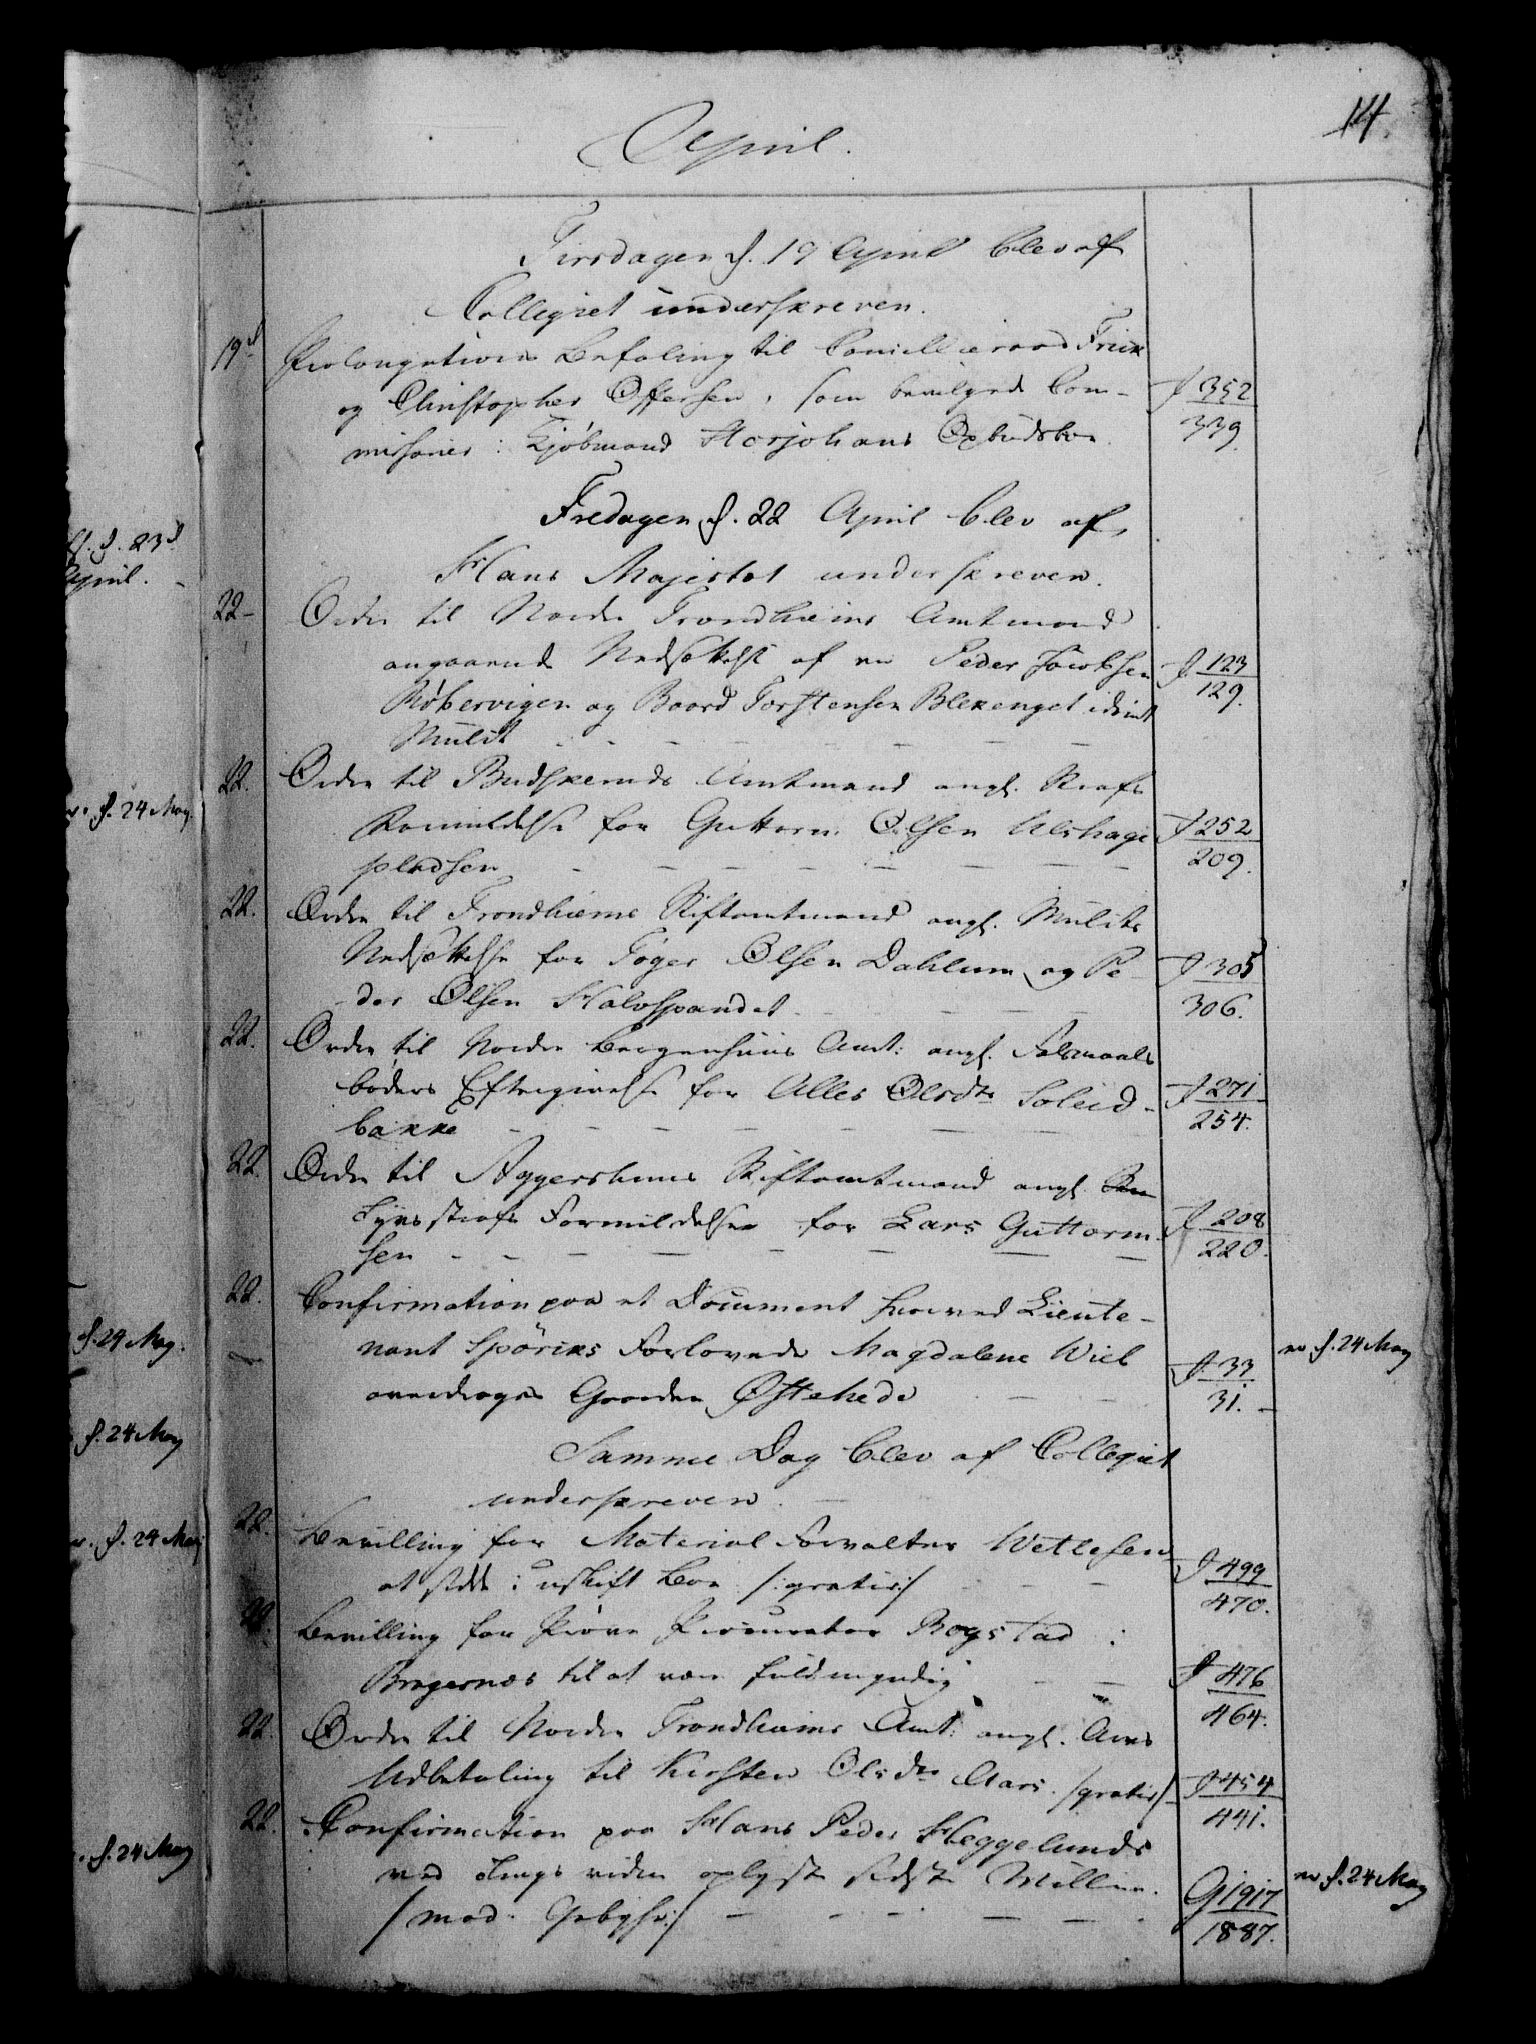 14
April.
Tirsdagen d. 19 April blev af
Collegiet underskreven.
19d Prolongations Befaling til Cancellieraad Frick
og Christopher Offersen, som bevilgede Com-
missarier i Kjøbmand Horjohans Opbudsboe
J 352
339.
Fredagen d. 22 April blev af
Hans Majestæt underskreven.
22 - Ordre til Nordre Trondhiems Amtmand
angaaende Nedsættelse af en Peder Jacobsen
Røbervigen og Baard Torstensen Blekenget idømt
Mulct - - - - -
J 123
129.
22. Ordre til Budskeruds Amtmand angl. Strafs
Formildelse for Guttorm Olsen Ulshage
pladsen - - - - -
J 252
209.
22. Ordre til Trondhiems Stiftamtmand angl. Mulcts
Nedsættelse for Toger Olsen Dahlum og Pe-
der Olsen Halvspandet - - -
J 305
306.
22. Ordre til Nordre Bergenhuus Amt: angl. Leiermaals
bøders Eftergivelse for Alles Olsdtr Soleid-
bakke - - - - -
J 271
254.
22. Ordre til Aggershuus Stiftamtmand angl.
Tyvsstrafs Formildelse for Lars Guttorm-
sen - - - - -
J 208
220.
22. Confirmation paa et Document hvorved Lieute-
nant Spörcks Forlovede Magdalene Wiel
overdrages Gaarden Østehede - -
J. 33
31. -
ex d. 24 May
Samme Dag blev af Collegiet
underskreven. -
22. Bevilling for Material Forvalter Wetlesen
at sidde i uskift Boe /:gratis:/ - - -
J 499
470.
22. Bevilling for Prøve Procurator Rogstad i
Bragernæs til at være fuldmyndig - -
J 476
464.
22. Ordre til Nordre Trondhiems Amt: angl. Arvs
Udbetaling til Kirsten Olsdtr Aars. /gratis/
J 454
441.
22. Confirmation paa Hans Peder Heggelunds
ved Tings viden oplyste sidste Villie.
/mod. Gebyhr:/ - - - - -
G 1917
1887.
ex d. 24 May
d. 23d
April. -
d. 24 May.
d. 24 May.
d. 24 May
d. 24 May
d. 24 May